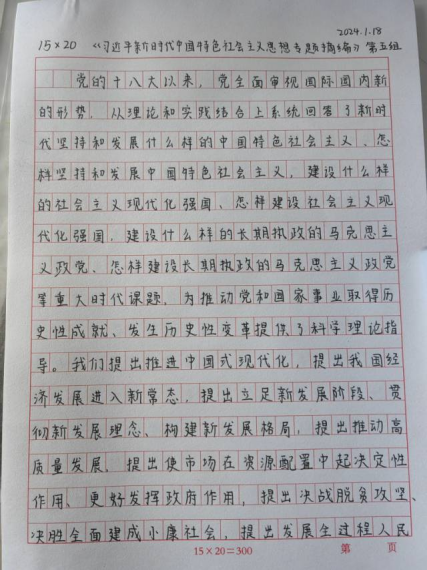 2024.1.18
15×20 《习近平新时代中国特色社会主义思想专题摘编》第五组
党的十八大以来，党全面审视国际国内新
的形势，从理论和实践结合上系统回答了新时
代坚持和发展什么样的中国特色社会主义、怎
样坚持和发展中国特色社会主义，建设什么样
的社会主义现代化强国、怎样建设社会主义现
代化强国，建设什么样的长期执政的马克思主
义政党、怎样建设长期执政的马克思主义政党
等重大时代课题，为推动党和国家事业取得历
史性成就、发生历史性变革提供了科学理论指
导。我们提出推进中国式现代化，提出我国经
济发展进入新常态，提出立足新发展阶段、贯
彻新发展理念、构建新发展格局，提出推动高
质量发展，提出使市场在资源配置中起决定性
作用、更好发挥政府作用，提出决战脱贫攻坚、
决胜全面建成小康社会，提出发展全过程人民
15×20=300 第 页